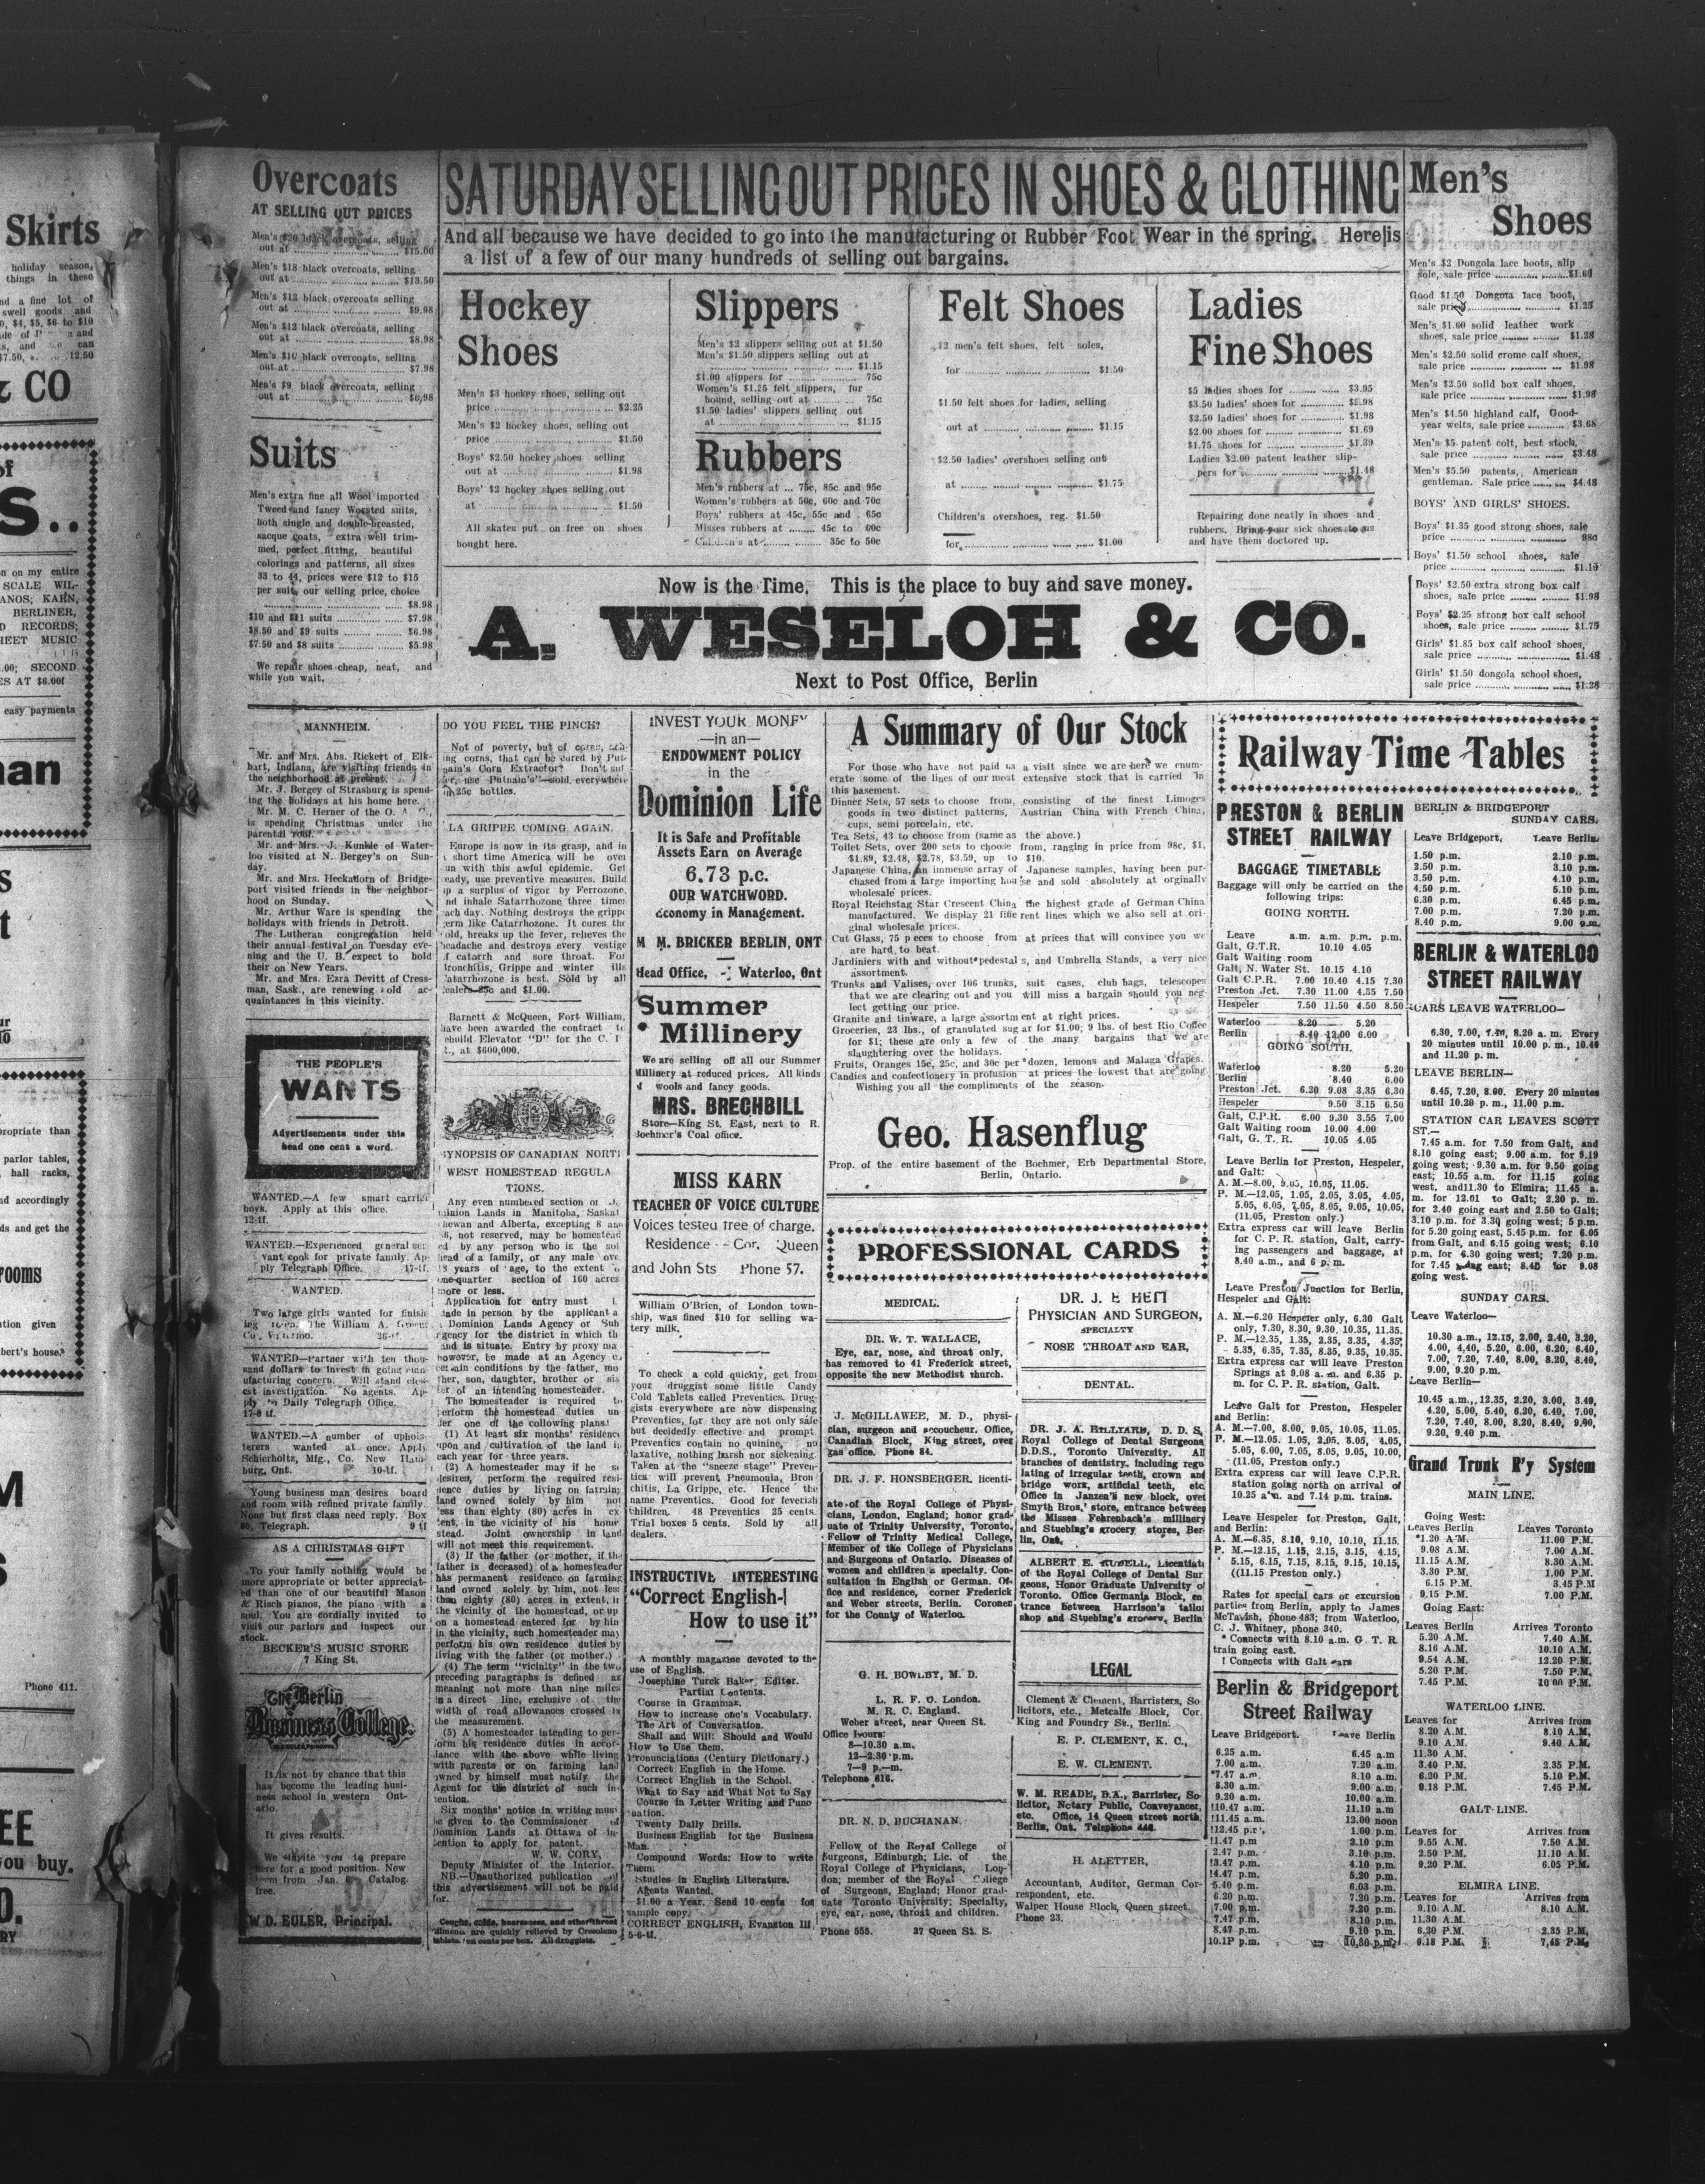 Skirts
holiday season,
things in these
nd a fine lot of
swell goods and
$4, $5, $6 to $10
12.50
& CO
easy payments
Phone 411.
you buy.
Overcoats
AT SELLING OUT PRICES
Men's $20 black overcoats, selling
out at $15.00
Men's $18 black overcoats, selling
out at $13.50
Men's $12 black overcoats selling
out at $9.98
Men's $12 black overcoats, selling
out at $8.98
Men's $10 black overcoats, selling
out at $7.98
Men's $9 black overcoats, selling
out at $6.98
Suits
Men's extra fine all Wool imported
Tweed and fancy Worsted suits,
both single and double-breasted,
sacque coats, extra well trim-
med, perfect fitting, beautiful
colorings and patterns, all sizes
33 to 44, prices were $12 to $15
per suit, our selling price, choice
$8.98
$10 and $11 suits $7.98
$8.50 and $9 suits $6.98
$7.50 and $8 suits $5.98
We repair shoes cheap, neat, and
while you wait.
SATURDAY SELLING OUT PRICES IN SHOES & CLOTHING
And all because we have decided to go into the manufacturing of Rubber Foot Wear in the spring. Here is
a list of a few of our many hundreds of selling out bargains.
Hockey
Shoes
Men's $3 hockey shoes, selling out
price $2.25
Men's $2 hockey shoes, selling out
price $1.50
Boys' $2.50 hockey shoes selling
out at $1.98
Boys' $2 hockey shoes selling out
at $1.50
All skates put on free on shoes
bought here.
Slippers
Men's $2 slippers selling out at $1.50
Men's $1.50 slippers selling out at
$1.15
$1.00 slippers for 75c
Women's $1.25 felt slippers, fur
bound, selling out at 75c
$1.50 ladies' slippers selling out
at $1.15
Rubbers
Men's rubbers at ... 75c, 85c and 95c
Women's rubbers at 50c, 60c and 70c
Boys' rubbers at 45c, 55c and . 65c
Misses rubbers at ........ 45c to 60c
Children's at 35c to 50c
Felt Shoes
$2 men's felt shoes, felt soles,
for $1.50
$1.50 felt shoes for ladies, selling
out at $1.15
$2.50 ladies' overshoes selling out
at $1.75
Children's overshoes, reg. $1.50
for $1.00
Ladies
Fine Shoes
$5 ladies shoes for $3.95
$3.50 ladies' shoes for $2.98
$2.50 ladies' shoes for $1.98
$2.00 shoes for $1.69
$1.75 shoes for $1.39
Ladies $2.00 patent leather slip-
pers for $1.48
Repairing done neatly in shoes and
rubbers. Bring your sick shoes to us
and have them doctored up.
Now is the Time. This is the place to buy and save money.
A. WESELOH & CO.
Next to Post Office, Berlin
Men's
Shoes
Men's $2 Dongola lace boots, slip
sole, sale price $1.69
Good $1.50 Dongola lace boot,
sale price $1.25
Men's $1.60 solid leather work
shoes, sale price $1.28
Men's $2.50 solid crome calf shoes,
sale price $1.98
Men's $2.50 solid box calf shoes,
sale price $1.98
Men's $4.50 highland calf, Good-
year welts, sale price $3.68
Men's $5 patent colt, best stock,
sale price $3.48
Men's $5.50 patents, American
gentleman. Sale price $4.48
BOYS' AND GIRLS' SHOES.
Boys' $1.35 good strong shoes, sale
price 98c
Boys' $1.50 school shoes, sale
price $1.19
Boys' $2.50 extra strong box calf
shoes, sale price $1.98
Boys' $2.25 strong box calf school
shoes, sale price $1.75
Girls' $1.85 box calf school shoes,
sale price $1.48
Girls' $1.50 dongola school shoes,
sale price $1.28
MANNHEIM.
Mr. and Mrs. Abs. Rickert of Elk-
hart, Indiana, are visiting friends in
the neighborhood at present.
Mr. J. Bergey of Strasburg is spend-
ing the holidays at his home here.
Mr. M. C. Herner of the O. A. C.,
is spending Christmas under the
parental roof.
Mr. and Mrs. J. Kunkle of Water-
loo visited at N. Bergey's on Sun-
day.
Mr. and Mrs. Heckadorn of Bridge-
port visited friends in the neighbor-
hood on Sunday.
Mr. Arthur Ware is spending the
holidays with friends in Detroit.
The Lutheran congregation held
their annual festival on Tuesday eve-
ning and the U. B. expect to hold
their on New Years.
Mr. and Mrs. Ezra Devitt of Cress-
man, Sask., are renewing old ac-
quaintances in this vicinity.
THE PEOPLE'S
WANTS
Advertisements under this
head one cent a word.
WANTED.—A few smart carrier
boys. Apply at this office.
12-tf.
WANTED.—Experienced general ser
vant cook for private family. Ap-
ply Telegraph Office. 17-tf.
WANTED.
Two large girls wanted for finish
ing room. The William A. Greene
Co., Waterloo. 26-tf.
WANTED—Partner with ten thou-
sand dollars to invest in going man
ufacturing concern. Will stand clos-
est investigation. No agents. Ap-
ply to Daily Telegraph Office.
17-8 tf.
WANTED.—A number of uphols-
terers wanted at once. Apply
Schierholtz, Mfg., Co. New Ham-
burg, Ont. 10-tf.
Young business man desires board
and room with refined private family.
None but first class need reply. Box
80, Telegraph. 9 tf
AS A CHRISTMAS GIFT
To your family nothing would be
more appropriate or better appreciat-
ed than one of our beautiful Mason
& Risch pianos, the piano with a
soul. You are cordially invited to
visit our parlors and inspect our
stock.
BECKER'S MUSIC STORE
7 King St.
The Berlin
Business College.
It is not by chance that this
has become the leading busi-
ness school in western Ont-
ario.
It gives results.
We invite you to prepare
here for a good position. New
term from Jan. Catalog.
free.
W D. EULER, Principal.
DO YOU FEEL THE PINCH?
Not of poverty, but of corns, ach-
ing corns, that can be cured by Put-
nam's Corn Extractor? Don't suf
fer, use "Putnam's"—sold everywhere
in 25c bottles.
LA GRIPPE COMING AGAIN.
Europe is now in its grasp, and in
a short time America will be over
run with this awful epidemic. Get
ready, use preventive measures. Build
up a surplus of vigor by Ferrozone,
and inhale Catarrhozone three times
each day. Nothing destroys the grippe
germ like Catarrhozone. It cures the
cold, breaks up the fever, relieves the
headache and destroys every vestige
of catarrh and sore throat. For
bronchitis, Grippe and winter ills
Catarrhozone is best. Sold by all
dealers 25c and $1.00.
Barnett & McQueen, Fort William,
have been awarded the contract to
rebuild Elevator "D" for the C. P
R., at $600,000.
SYNOPSIS OF CANADIAN NORTH
WEST HOMESTEAD REGULA
TIONS.
Any even numbered section of Do
minion Lands in Manitoba, Saskat
chewan and Alberta, excepting 8 and
26, not reserved, may be homestead
ed by any person who is the sol
head of a family, or any male ove
18 years of age, to the extent o
one-quarter section of 160 acres
more or less.
Application for entry must
made in person by the applicant a
a Dominion Lands Agency or Sub
agency for the district in which th
land is situate. Entry by proxy ma
however, be made at an Agency o
certain conditions by the father, mo
ther, son, daughter, brother or sis
ter of an intending homesteader.
The homesteader is required to
perform the homestead duties un
der one of the following plans:
(1) At least six months' residence
upon and cultivation of the land in
each year for three years.
(2) A homesteader may if he so
desires, perform the required resi-
dence duties by living on farming
land owned solely by him not
less than eighty (80) acres in ex
tent, in the vicinity of his home
stead. Joint ownership in land
will not meet this requirement.
(3) If the father (or mother, if the
father is deceased) of a homesteader
has permanent residence on farming
land owned solely by him, not less
than eighty (80) acres in extent, in
the vicinity of the homestead, or up
on a homestead entered for by him
in the vicinity, such homesteader may
perform his own residence duties by
living with the father (or mother.)
(4) The term "vicinity" in the two
preceding paragraphs is defined as
meaning not more than nine miles
in a direct line, exclusive of the
width of road allowances crossed in
the measurement.
(5) A homesteader intending to per-
form his residence duties in accor-
dance with the above while living
with parents or on farming land
owned by himself must notify the
Agent for the district of such in-
tention.
Six months' notice in writing must
be given to the Commissioner of
Dominion Lands at Ottawa of in-
tention to apply for patent.
W. W. CORY,
Deputy Minister of the Interior.
NB.—Unauthorized publication of
this advertisement will not be paid
for.
Coughs, colds, hoarseness, and other throat
ailments are quickly relieved by Cresolene
tablets, ten cents per box. All druggists.
INVEST YOUR MONEY
—in an—
ENDOWMENT POLICY
in the
Dominion Life
It is Safe and Profitable
Assets Earn on Average
6.73 p.c.
OUR WATCHWORD.
Economy in Management.
M. M. BRICKER BERLIN, ONT
Head Office, - Waterloo, Ont
Summer
Millinery
We are selling off all our Summer
Millinery at reduced prices. All kinds
of wools and fancy goods.
MRS. BRECHBILL
Store—King St. East, next to R.
Boehmer's Coal office.
MISS KARN
TEACHER OF VOICE CULTURE
Voices tested free of charge.
Residence - - Cor. Queen
and John Sts Phone 57.
William O'Brien, of London town-
ship, was fined $10 for selling wa-
tery milk.
To check a cold quickly, get from
your druggist some little Candy
Cold Tablets called Preventics. Drug-
gists everywhere are now dispensing
Preventics, for they are not only safe
but decidedly effective and prompt.
Preventics contain no quinine, no
laxative, nothing harsh nor sickening.
Taken at the "sneeze stage" Preven-
tics will prevent Pneumonia, Bron
chitis, La Grippe, etc. Hence the
name Preventics. Good for feverish
children. 48 Preventics 25 cents.
Trial boxes 5 cents. Sold by all
dealers.
INSTRUCTIVE INTERESTING
"Correct English-
How to use it"
A monthly magazine devoted to the
use of English.
Josephine Turck Baker, Editor.
Partial Contents.
Course in Grammar.
How to increase one's Vocabulary.
The Art of Conversation.
Shall and Will: Should and Would
How to Use them.
Pronunciations (Century Dictionary.)
Correct English in the Home.
Correct English in the School.
What to Say and What Not to Say
Course in Letter Writing and Punc
tuation.
Twenty Daily Drills.
Business English for the Business
Man.
Compound Words: How to write
Them.
Studies in English Literature.
Agents Wanted.
$1.00 a Year. Send 10 cents for
sample copy.
CORRECT ENGLISH, Evanston Ill.
5-6-tf.
A Summary of Our Stock
For those who have not paid us a visit since we are here we enum-
erate some of the lines of our most extensive stock that is carried in
this basement.
Dinner Sets, 57 sets to choose from, consisting of the finest Limoges
goods in two distinct patterns, Austrian China with French China,
cups, semi porcelain, etc.
Tea Sets, 43 to choose from (same as the above.)
Toilet Sets, over 200 sets to choose from, ranging in price from 98c, $1,
$1.89, $2.48, $2.78, $3.59, up to $10.
Japanese China, an immense array of Japanese samples, having been pur-
chased from a large importing house and sold absolutely at orginally
wholesale prices.
Royal Reichstag Star Crescent China the highest grade of German China
manufactured. We display 21 different lines which we also sell at ori-
ginal wholesale prices.
Cut Glass, 75 pieces to choose from at prices that will convince you we
are hard to beat.
Jardiniers with and without pedestals, and Umbrella Stands, a very nice
assortment.
Trunks and Valises, over 106 trunks, suit cases, club bags, telescopes
that we are clearing out and you will miss a bargain should you neg-
lect getting our price.
Granite and tinware, a large assortment at right prices.
Groceries, 23 lbs., of granulated sugar for $1.00; 9 lbs. of best Rio Coffee
for $1; these are only a few of the many bargains that we are
slaughtering over the holidays.
Fruits, Oranges 15c, 25c, and 30c per dozen, lemons and Malaga Grapes.
Candies and confectionery in profusion at prices the lowest that are going
Wishing you all the compliments of the season.
Geo. Hasenflug
Prop. of the entire basement of the Boehmer, Erb Departmental Store,
Berlin, Ontario.
PROFESSIONAL CARDS
MEDICAL.
DR. W. T. WALLACE,
Eye, ear, nose, and throat only,
has removed to 41 Frederick street,
opposite the new Methodist church.
J. McGILLAWEE, M. D., physi-
cian, surgeon and accoucheur. Office,
Canadian Block, King street, over
gas office. Phone 84.
DR. J. F. HONSBERGER, licenti-
ate of the Royal College of Physi-
cians, London, England; honor grad-
uate of Trinity University, Toronto,
Fellow of Trinity Medical College,
Member of the College of Physicians
and Surgeons of Ontario. Diseases of
women and children a specialty. Con-
sultation in English or German. Of-
fice and residence, corner Frederick
and Weber streets, Berlin. Coroner
for the County of Waterloo.
G. H. BOWLBY, M. D.
L. R. F. O. London.
M. R. C. England.
Weber street, near Queen St.
Office hours:
8—10.30 a.m.
12—2.30 p.m.
7—9 p.—m.
Telephone 616.
DR. N. D. BUCHANAN.
Fellow of the Royal College of
Surgeons, Edinburgh; Lic. of the
Royal College of Physicians, Lon-
don; member of the Royal College
of Surgeons, England; Honor grad-
uate Toronto University; Specialty,
eye, ear, nose, throat and children.
Phone 555. 37 Queen St. S.
PHYSICIAN AND SURGEON,
SPECIALTY
NOSE THROAT AND EAR,
DENTAL.
DR. J. A. HILLIARD, D. D. S,
Royal College of Dental Surgeons
D.D.S., Toronto University. All
branches of dentistry, including regu
lating of irregular teeth, crown and
bridge work, artificial teeth, etc.
Office in Janzen's new block, over
Smyth Bros,' store, entrance between
the Misses Fehrenbach's millinery
and Stuebing's grocery stores, Ber-
lin, Ont.
ALBERT E. RUDELL, Licentiate
of the Royal College of Dental Sur
geons, Honor Graduate University of
Toronto. Office Germania Block, en
trance between Harrison's tailor
shop and Stuebing's grocery, Berlin
LEGAL
Clement & Clement, Barristers, So
licitors, etc., Metcalfe Block, Cor.
King and Foundry St., Berlin.
E. P. CLEMENT, K. C.,
E. W. CLEMENT.
W. M. READE, B.A., Barrister, So
licitor, Notary Public, Conveyancer,
etc. Office, 14 Queen street north,
Berlin, Ont. Telephone 446.
H. ALETTER,
Accountant, Auditor, German Cor-
respondent, etc.
Walper House Block, Queen street.
Phone 23.
Railway Time Tables
PRESTON & BERLIN
STREET RAILWAY
BAGGAGE TIMETABLE
Baggage will only be carried on the
following trips:
GOING NORTH.
Leave a.m. a.m. p.m. p.m.
Galt, G.T.R. 10.10 4.05
Galt Waiting room
Galt, N. Water St. 10.15 4.10
Galt C.P.R. 7.00 10.40 4.15 7.30
Preston Jct. 7.30 11.00 4.35 7.50
Hespeler 7.50 11.50 4.50 8.50
Waterloo 8.20 5.20
Berlin 8.40 12.00 6.00
GOING SOUTH.
Waterloo 8.20 5.20
Berlin 8.40 6.00
Preston Jct. 6.20 9.08 3.35 6.30
Hespeler 9.50 3.15 6.50
Galt, C.P.R. 6.00 9.30 3.55 7.00
Galt Waiting room 10.00 4.00
Galt, G. T. R. 10.05 4.05
Leave Berlin for Preston, Hespeler,
and Galt:
A. M.—8.00, 9.05, 10.05, 11.05.
P. M.—12.05, 1.05, 2.05, 3.05, 4.05,
5.05, 6.05, 7.05, 8.05, 9.05, 10.05,
(11.05, Preston only.)
Extra express car will leave Berlin
for C. P. R. station, Galt, carry-
ing passengers and baggage, at
8.40 a.m., and 6 p.m.
Leave Preston Junction for Berlin,
Hespeler and Galt:
A. M.—6.20 Hespeler only, 6.30 Galt
only, 7.30, 8.30, 9.30, 10.35, 11.35.
P. M.—12.35, 1.35, 2.35, 3.35, 4.35*
5.35, 6.35, 7.35, 8.35, 9.35, 10.35.
Extra express car will leave Preston
Springs at 9.08 a.m. and 6.35 p.
m. for C. P. R. station, Galt.
Leave Galt for Preston, Hespeler
and Berlin:
A. M.—7.00, 8.00, 9.05, 10.05, 11.05.
P. M.—12.05, 1.05, 2.05, 3.05, 4.05,
5.05, 6.00, 7.05, 8.05, 9.05, 10.00,
(11.05, Preston only.)
Extra express car will leave C.P.R.
station going north on arrival of
10.25 a.m. and 7.14 p.m. trains.
Leave Hespeler for Preston, Galt,
and Berlin:
A. M.—6.35, 8.10, 9.10, 10.10, 11.15.
P. M.—12.15, 1.15, 2.15, 3.15, 4.15,
5.15, 6.15, 7.15, 8.15, 9.15, 10.15,
((11.15 Preston only.)
Rates for special cars or excursion
parties from Berlin, apply to James
McTavish, phone 483; from Waterloo,
C. J. Whitney, phone 340.
* Connects with 8.10 a.m. G T. R.
train going east.
! Connects with Galt cars
Berlin & Bridgeport
Street Railway
Leave Bridgeport. Leave Berlin
6.25 a.m. 6.45 a.m
7.00 a.m. 7.20 a.m.
*7.47 a.m. 8.10 a.m.
8.30 a.m. 9.00 a.m
9.20 a.m. 10.00 a.m.
!10.47 a.m. 11.10 a.m
!11.45 a.m. 12.00 noon
!12.45 p.m. 1.00 p.m.
!1.47 p.m 2.10 p.m
2.47 p.m. 3.10 p.m.
!3.47 p.m. 4.10 p.m.
!4.47 p.m. 5.20 p.m.
5.40 p.m. 6.03 p.m.
6.20 p.m. 7.20 p.m.
7.00 p.m. 7.20 p.m.
7.47 p.m. 8.10 p.m.
8.47 p.m. 9.10 p.m.
10.1P p.m. 10.30 p.m.
BERLIN & BRIDGEPORT
SUNDAY CARS.
Leave Bridgeport, Leave Berlin.
1.50 p.m. 2.10 p.m.
2.50 p.m. 3.10 p.m.
3.50 p.m. 4.10 p.m.
4.50 p.m. 5.10 p.m.
6.30 p.m. 6.45 p.m.
7.00 p.m. 7.20 p.m.
8.40 p.m. 9.00 p.m.
BERLIN & WATERLOO
STREET RAILWAY
CARS LEAVE WATERLOO—
6.30, 7.00, 7.40, 8.20 a. m. Every
20 minutes until 10.00 p.m., 10.40
and 11.20 p. m.
LEAVE BERLIN—
6.45, 7.20, 8.00. Every 20 minutes
until 10.20 p. m., 11.00 p.m.
STATION CAR LEAVES SCOTT
ST.—
7.45 a.m. for 7.50 from Galt, and
8.10 going east; 9.00 a.m. for 9.19
going west; 9.30 a.m. for 9.50 going
east; 10.55 a.m. for 11.15 going
west, and11.30 to Elmira; 11.45 a.
m. for 12.01 to Galt; 2.20 p. m.
for 2.40 going east and 2.50 to Galt;
3.10 p.m. for 3.30 going west; 5 p.m.
for 5.20 going east, 5.45 p.m. for 6.05
from Galt, and 6.15 going west; 6.10
p.m. for 6.30 going west; 7.20 p.m.
for 7.45 going east; 8.40 for 9.08
going west.
SUNDAY CARS.
Leave Waterloo—
10.30 a.m., 12.15, 2.00, 2.40, 3.20,
4.00, 4,40, 5.20, 6.00, 6.20, 6.40,
7.00, 7.20, 7.40, 8.00, 8.20, 8.40,
9.00, 9.20 p.m.
Leave Berlin—
10.45 a.m., 12.35, 2.20, 3.00, 3.40,
4.20, 5.00, 5.40, 6.20, 6.40, 7.00,
7.20, 7.40, 8.00, 8.20, 8.40, 9.00,
9.20, 9.40 p.m.
Grand Trunk R'y System
MAIN LINE.
Going West:
Leaves Berlin Leaves Toronto
*1.20 A.M. 11.00 P.M.
9.08 A.M. 7.00 A.M.
11.15 A.M. 8.30 A.M.
3.30 P.M. 1.00 P.M.
6.15 P.M. 3.45 P.M
9.15 P.M. 7.00 P.M.
Going East:
Leaves Berlin Arrives Toronto
5.20 A.M. 7.40 A.M.
8.16 A.M. 10.10 A.M.
9.54 A.M. 12.20 P.M.
5.20 P.M. 7.50 P.M.
7.45 P.M. 10 00 P.M.
WATERLOO LINE.
Leaves for Arrives from
8.20 A.M. 8.10 A.M,
9.10 A.M. 9.40 A.M.
11.30 A.M.
3.40 P.M. 2.35 P.M.
6.20 P.M. 5.10 P.M.
9.18 P.M. 7.45 P.M.
GALT LINE.
Leaves for Arrives from
9.55 A.M. 7.50 A.M.
2.50 P.M. 11.10 A.M.
9.20 P.M. 6.05 P.M.
ELMIRA LINE.
Leaves for Arrives from
9.10 A.M. 8.10 A.M.
11.30 A.M.
6.20 P.M. 2.35 P.M,
9.18 P.M. 7.45 P.M.